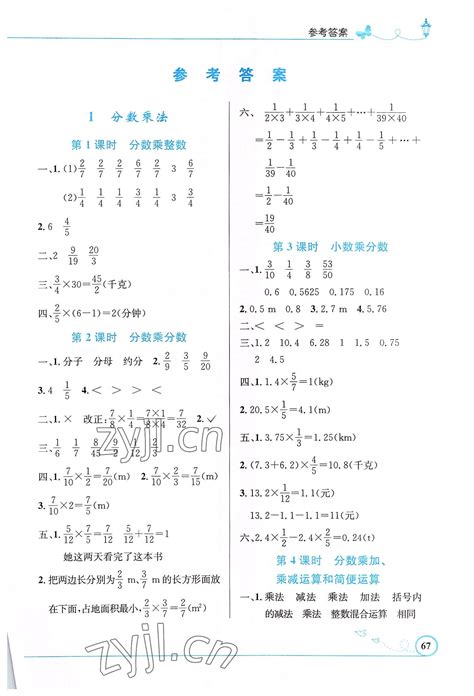 参考答案
参 考 答 案
1 分数乘法
第 1 课时 分数乘整数
一、1. (1) 2/7 2/7 2/7 6/7 3 6/7
(2) 1/4 1/4 3/4 1/4 3 3/4
2. 6 4/5
二、2 9/19 20/3
三、3/4×30=45/2(千克)
四、2/5×(6-1)=2(分钟)
第 2 课时 分数乘分数
一、1. 分子 分母 约分 2. 2/9 3/35
3. 4 1/5 4. > < < <
二、1. × 改正: 7/8×1/4=7×1/8×4=7/32 2. ✓
三、1/6
四、1.
2. 7/10×2=7/5(m)
五、1. 5/12 7/12 5/12+7/12=1
她这两天看完了这本书
2. 把两边长分别为2/3 m、2/5 m 的长方形面放
在下面,占地面积最小,
六、1/2×3+1/3×4+1/4×5+…+1/39×40
=1/2-1/3+1/3-1/4+1/4-1/5+…+
1/39-1/40
=1/2-1/40
=19/40
第 3 课时 小数乘分数
一、1. 3/10 1/4 3/8 53/50
0.6 0.5625 0.175 1.16
2. 0.5 m 0.8 3. 2.7 m 4. 5.76
二、< < > =
三、1. 1.2 10.4 6.28 1 5.5
2 4.5
四、1. 1.4×5/7=1(kg)
2. 20.5×4/5=16.4(m)
五、1. 3.75×1/3=1.25(km)
2. (7.3+6.2)×4/5=10.8(千克)
3. 13.2×1/12=1.1(元)
13.2-1.1-1.1=11(元)
六、2.4×(1-2/5-1/2)=0.24(t)
第 4 课时 分数乘加、
乘减运算和简便运算
一、1. 乘法 减法 乘法 加法 括号内
的减法 乘法 整数混合运算 相同
67
zyjl.cn
zyjl.cn